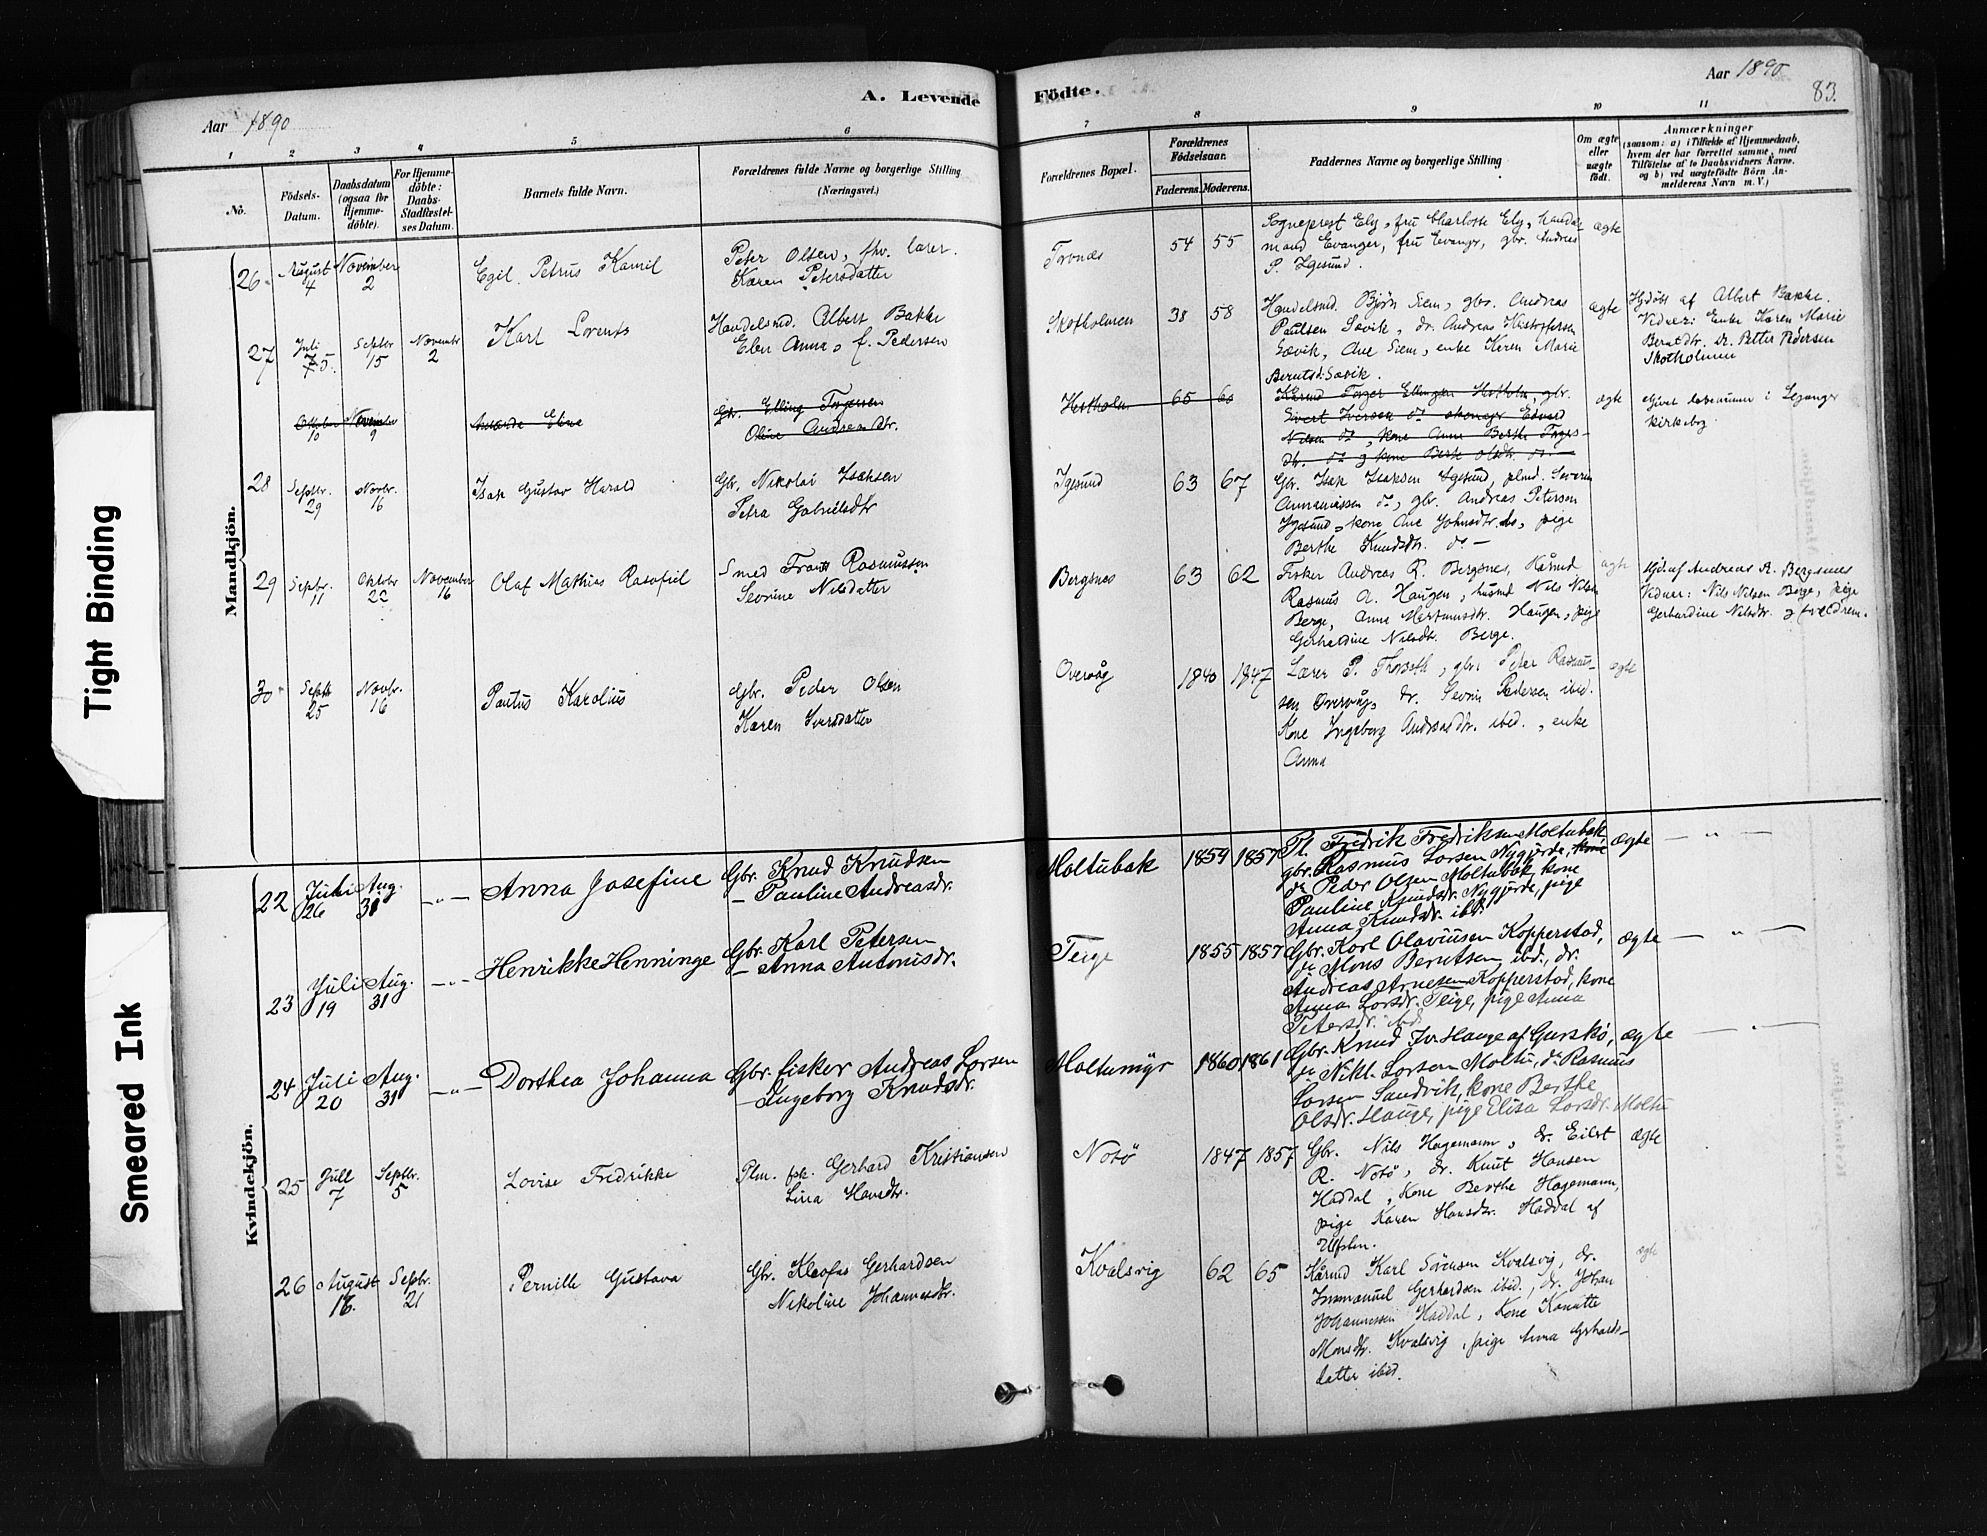 Aar 1890
A. Levende
Födte.
Aar 1890
83.
1 2 3 4 5 6 7 8 9 10 11
No.
Födsels-
Datum.
Daabsdatum
(ogsaa for
Hjemme-
döbte).
For Hjemme-
döbte:
Daabs-
Stadfæstel-
ses Datum.
Barnets fulde Navn.
Forældrenes fulde Navne og borgerlige Stilling
(Næringsvei.)
Forældrenes Bopæl.
Forældrenes
Födselsaar.
Faderens. Moderens.
Faddernes Navne og borgerlige Stilling
Om ægte
eller
uægte
födt.
Anmærkninger
(saasom: a) i Tilfælde af Hjemmedaab,
hvem der har forrettet samme, med
Tilföielse af to Daabsvidners Navne,
og b) ved uægtefödte Börn An-
melderens Navn m. V.)
Mandkjön.
26
August
4
November
2
Egil Petrus Kamil
Peter Olsen, fhv. lærer.
Karen Petersdatter
54 55
Sogneprest Ely, fru Charlotte Ely, handels
mand Evanger, fru Evanger, gbr. Andreas
P. Igesund.
ægte
27
Juli
5.
Septbr
15
Novembr
2
Karl Lorents
Handelsmd. Albert Bakke
Eline Anna, f. Pedersen
Skotholmen
38 58
Handelsmd. Bjørn Siem, gbr. Andreas
Paulsen Søvik, dr. Andreas Kristofersen
Søvik, Ane Siem, enke Karen Marie
Berntsd. Søvik.
ægte
Hjdøbt af Albert Bakke.
Vidner: Enke Karen Marie
Berntdtr. dr. Petter Pedersen
Skotholmen
Oktober
10
November
9
Gbr. Elling Torgersen
Oline Andreasdtr.
65 60
gbr.
Sivert Iversen
Nilsen
ægte
kirkebog.
28
Septbr.
29
Novbr.
16
Isak Gustav Harald
Gbr. Nikolai Isaksen
Petra Gabrielsdtr
Igesund
63 67
Gbr. Isak Isaksen Igesund, plmd. Severin
Annaniassen do, gbr. Andreas Petersen
Igesund, kone Ane Johnsdtr. do, pige
Berthe Knudsdtr. do —
29
Septbr.
11
Oktobr
22
November
16
Olaf Mathias Rasafiel
Smed Frants Rasmussen
Sevrine Nilsdatter
Bergsnes
63 62
Fisker Andreas R. Bergsnes, Kårmd
Rasmus A. Haugen, husmd Nils Nilsen
Berge, Anne Mortensdtr. Haugen, pige
Gerhardine Nilsdt. Berge.
ægte
Hjd. af Andreas R. Bergsnes
Vidner: Nils Nilsen Berge, pige
Gerhardine Nilsdtr. og forældrene.
30
Septbr
25
Novbr.
16
Paulus Karolius
Gbr. Peder Olsen
Karen Iversdatter
Overvåg
1840 1847
Lærer P. Thorseth, gbr. Peter Rasmus-
sen Overvåg, dr. Sevrin Pedersen ibid.
Kone Ingeborg Andreasdtr. ibid., enke
Anna
ægte
Kvindekjön.
22
Juli
26
Aug.
31
—„—
Anna Josefine
Gbr. Knud Knudsen
— Pauline Andreasdr.
Moltubak
1859 1857
Pl. Fredrik Fredriksen Moltubak
gbr. Rasmus Larsen Nygjørde, kone
dr Peder Olsen Moltubak, kone
Pauline Knudsdr. Nygjørde, pige
Anna Knudsdr. ibd.
Ægte
— „ —
23
Juli
19
Aug.
31
—„—
Henrikke Henninge
Gbr. Karl Petersen
— Anna Antonisdr.
Teige
1855 1857
Gbr. Karl Olaviusen Kopperstad,
gr Mons Berntsen ibd., dr.
Andreas Arnesen Kopperstad, kone
Anna Larsdr. Teige, pige Anna
Petersdr. ibd.
Ægte
— „ —
24
Juli
20
Aug.
31
—„—
Dorthea Johanna
Gbr. fisker Andreas Larsen
— Ingeborg Knudsdr.
Moltumyr
1860 1861
Gbr. Knud Ivr. Hauge af Gurskø,
gr Nikl. Larsen Moltu, dr Rasmus
Larsen Sandvik, kone Berthe
Olsdr. Hauge, pige Elisa Larsdr. Moltu
ægte
— „ —
25
Juli
7
Septbr.
5
Lovise Fredrikke
Plm. fsk. Gerhard Kristiansen
Lina Hansdtr.
Notø
1847 1857
Gbr. Nils Hagemann, dr. Eilert
R. Notø, dr. Knut Hansen
Haddal, Kone Berthe Hagemann,
pige Karen Hansdtr. Haddal af
Ulfsten.
ægte
26
August
16.
Septbr.
21
Pernille Gustava
Gbr. Kleofas Gerhardsen
Nikoline Johannesdtr.
Kvalsvig
62 65
Kårmd Karl Sörensen Kvalsvig, dr.
Immanuel Gerhardsen ibid., dr. Johan
Johannessen Haddal, Kone Kanutte
Monsdtr. Kvalsvig, pige Anna Gerhards-
datter ibid.
ægte
Tight Binding
Smeared Ink